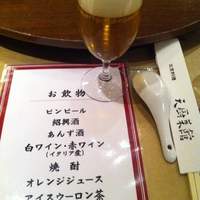 お飲物
ビンビール
紹興酒
あんず酒
白ワイン・赤ワイン
(イタリア産)
焼酎
オレンジジュース
アイスウーロン茶
天厨菜館